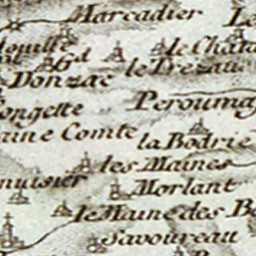 Marcadier Le
le Chata
Gd
Donzac le Trezau
ongette Peroumag
aine Comte la Bodrie
les Maines
nuisier Morlant
le Maine des Bo
Savoureau